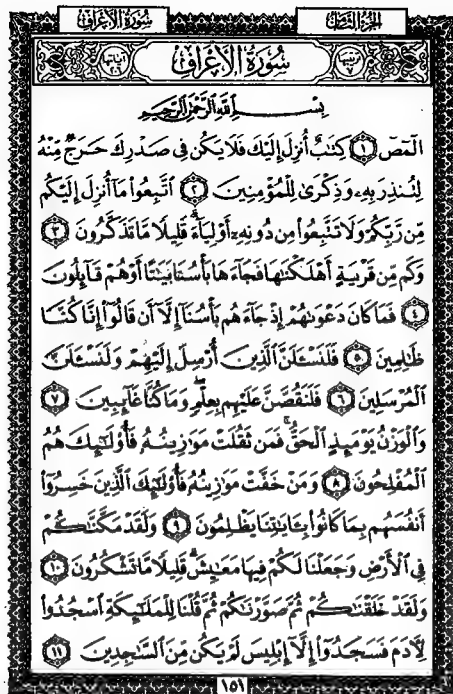 الجُزْءُ سُورَةُ الأَعْرَافِ
ترتيبها ٧ سُورَةُ الأَعْرَافِ آياتها ٢٠٦
بِسْمِ ٱللَّهِ ٱلرَّحْمَٰنِ ٱلرَّحِيمِ
الٓمٓصٓ ١ كِتَٰبٌ أُنزِلَ إِلَيْكَ فَلَا يَكُن فِى صَدْرِكَ حَرَجٌ مِّنْهُ
لِتُنذِرَ بِهِۦ وَذِكْرَىٰ لِلْمُؤْمِنِينَ ٢ ٱتَّبِعُوا۟ مَآ أُنزِلَ إِلَيْكُم
مِّن رَّبِّكُمْ وَلَا تَتَّبِعُوا۟ مِن دُونِهِۦٓ أَوْلِيَآءَ ۗ قَلِيلًا مَّا تَذَكَّرُونَ ٣
وَكَم مِّن قَرْيَةٍ أَهْلَكْنَٰهَا فَجَآءَهَا بَأْسُنَا بَيَٰتًا أَوْ هُمْ قَآئِلُونَ
٤ فَمَا كَانَ دَعْوَىٰهُمْ إِذْ جَآءَهُم بَأْسُنَآ إِلَّآ أَن قَالُوٓا۟ إِنَّا كُنَّا
ظَٰلِمِينَ ٥ فَلَنَسْـَٔلَنَّ ٱلَّذِينَ أُرْسِلَ إِلَيْهِمْ وَلَنَسْـَٔلَنَّ
ٱلْمُرْسَلِينَ ٦ فَلَنَقُصَّنَّ عَلَيْهِم بِعِلْمٍ ۖ وَمَا كُنَّا غَآئِبِينَ ٧
وَٱلْوَزْنُ يَوْمَئِذٍ ٱلْحَقُّ ۚ فَمَن ثَقُلَتْ مَوَٰزِينُهُۥ فَأُو۟لَٰٓئِكَ هُمُ
ٱلْمُفْلِحُونَ ٨ وَمَنْ خَفَّتْ مَوَٰزِينُهُۥ فَأُو۟لَٰٓئِكَ ٱلَّذِينَ خَسِرُوٓا۟
أَنفُسَهُم بِمَا كَانُوا۟ بِـَٔايَٰتِنَا يَظْلِمُونَ ٩ وَلَقَدْ مَكَّنَّٰكُمْ
فِى ٱلْأَرْضِ وَجَعَلْنَا لَكُمْ فِيهَا مَعَٰيِشَ ۗ قَلِيلًا مَّا تَشْكُرُونَ ١٠
وَلَقَدْ خَلَقْنَٰكُمْ ثُمَّ صَوَّرْنَٰكُمْ ثُمَّ قُلْنَا لِلْمَلَٰٓئِكَةِ ٱسْجُدُوا۟
لِـَٔادَمَ فَسَجَدُوٓا۟ إِلَّآ إِبْلِيسَ لَمْ يَكُن مِّنَ ٱلسَّٰجِدِينَ ١١
١٥١